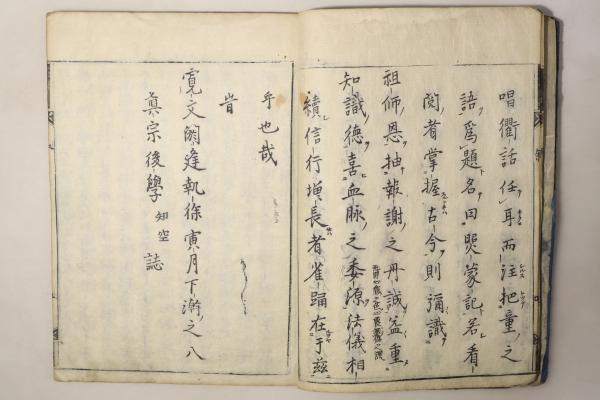 唱衢話任耳而注把童之
語爲題名曰㷖蒙記若看
閲者掌握古今則彌識
祖師恩抽報謝之丹誠益重
知識德喜血脉之委源法儀相
續信行増長者雀踊在于玆
乎也哉
旹
寛文閼逢執徐寅月下澣之八
眞宗後學知空誌